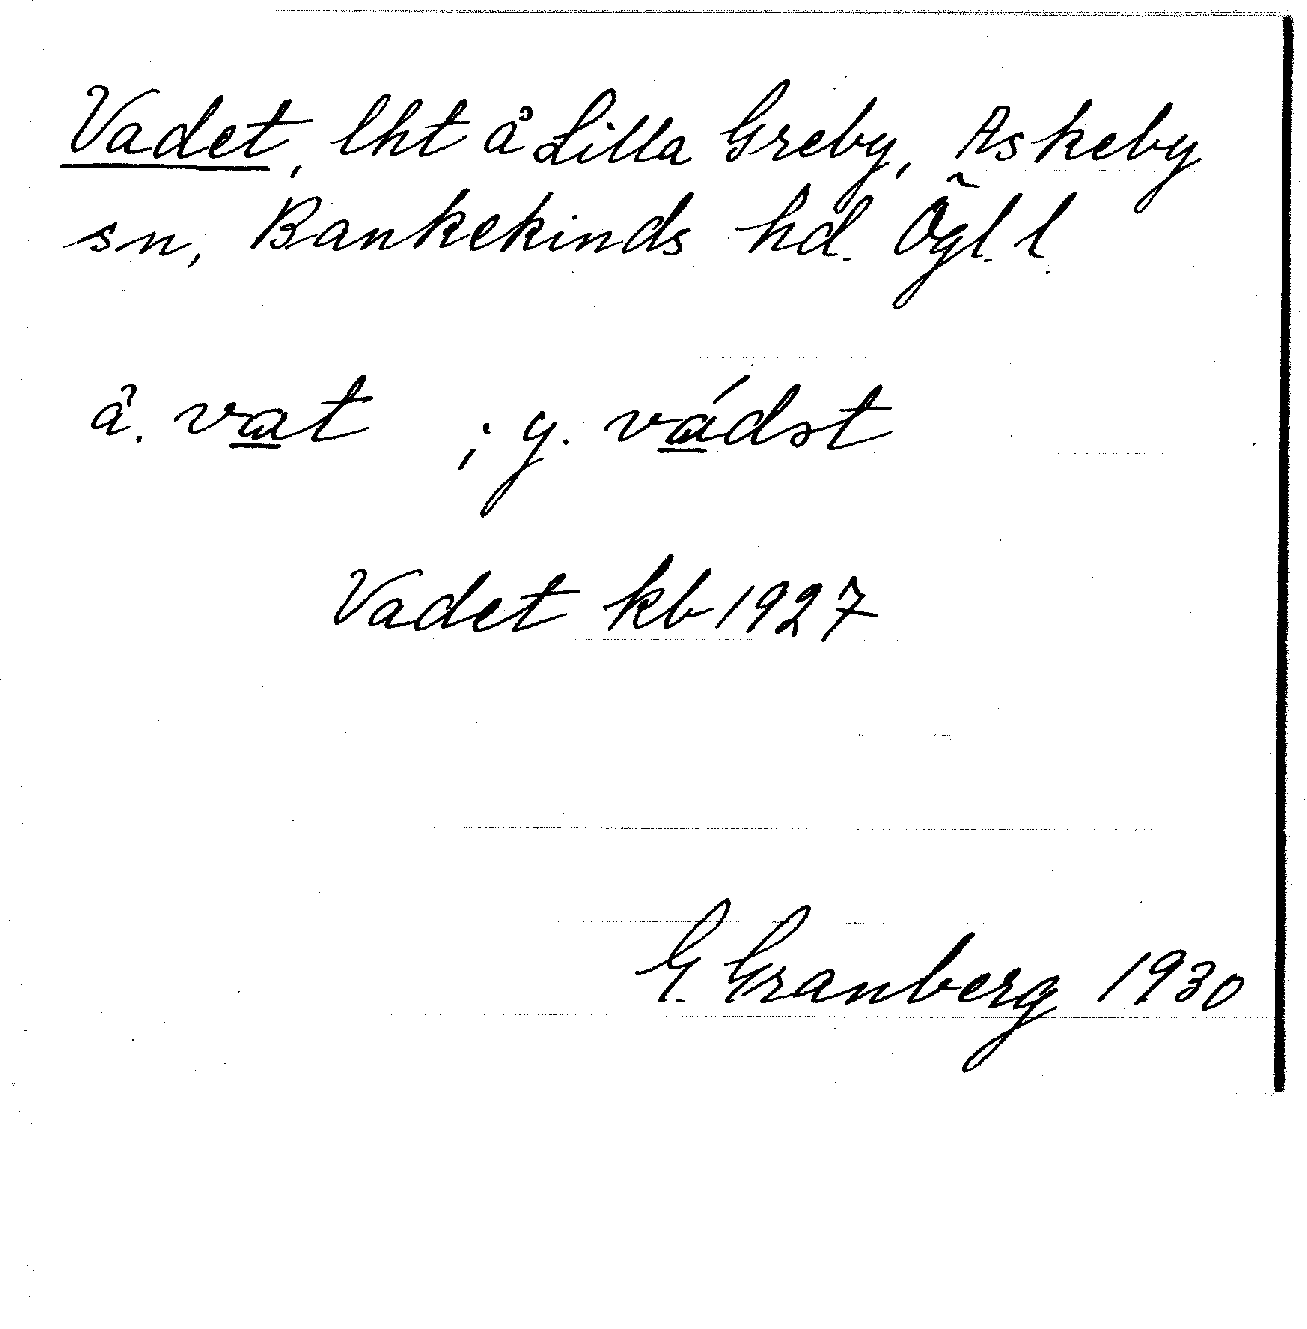 Vadet, lht å Lilla Greby, Askeby
sn, Bankekinds hd. Ögl. l.
å. vat ; y. vádət
Vadet kb 1927
G. Granberg 1930